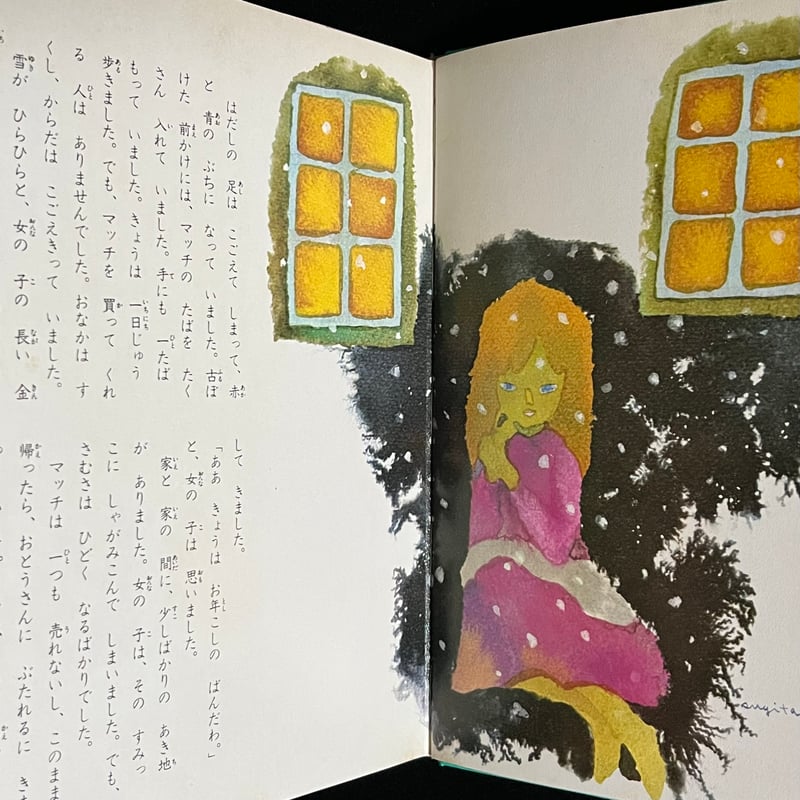 はだしの 足は こごえて しまって、赤
と 青の ぶちに なって いました。古ぼ
けた 前かけには、マッチの たばを たく
さん 入れて いました。手にも 一たば
もって いました。きょうは 一日じゅう
歩きました。でも、マッチを 買って くれ
る 人は ありませんでした。おなかは す
くし、からだは こごえきって いました。
雪が ひらひらと、女の 子の 長い 金
して きました。
「ああ きょうは お年こしの ばんだわ。」
と、女の 子は 思いました。
家と 家の 間に、少しばかりの あき地
が ありました。女の 子は、その すみっ
こに しゃがみこんで しまいました。でも、
さむさは ひどく なるばかりでした。
マッチは 一つも 売れないし、このまま
帰ったら、おとうさんに ぶたれるに き